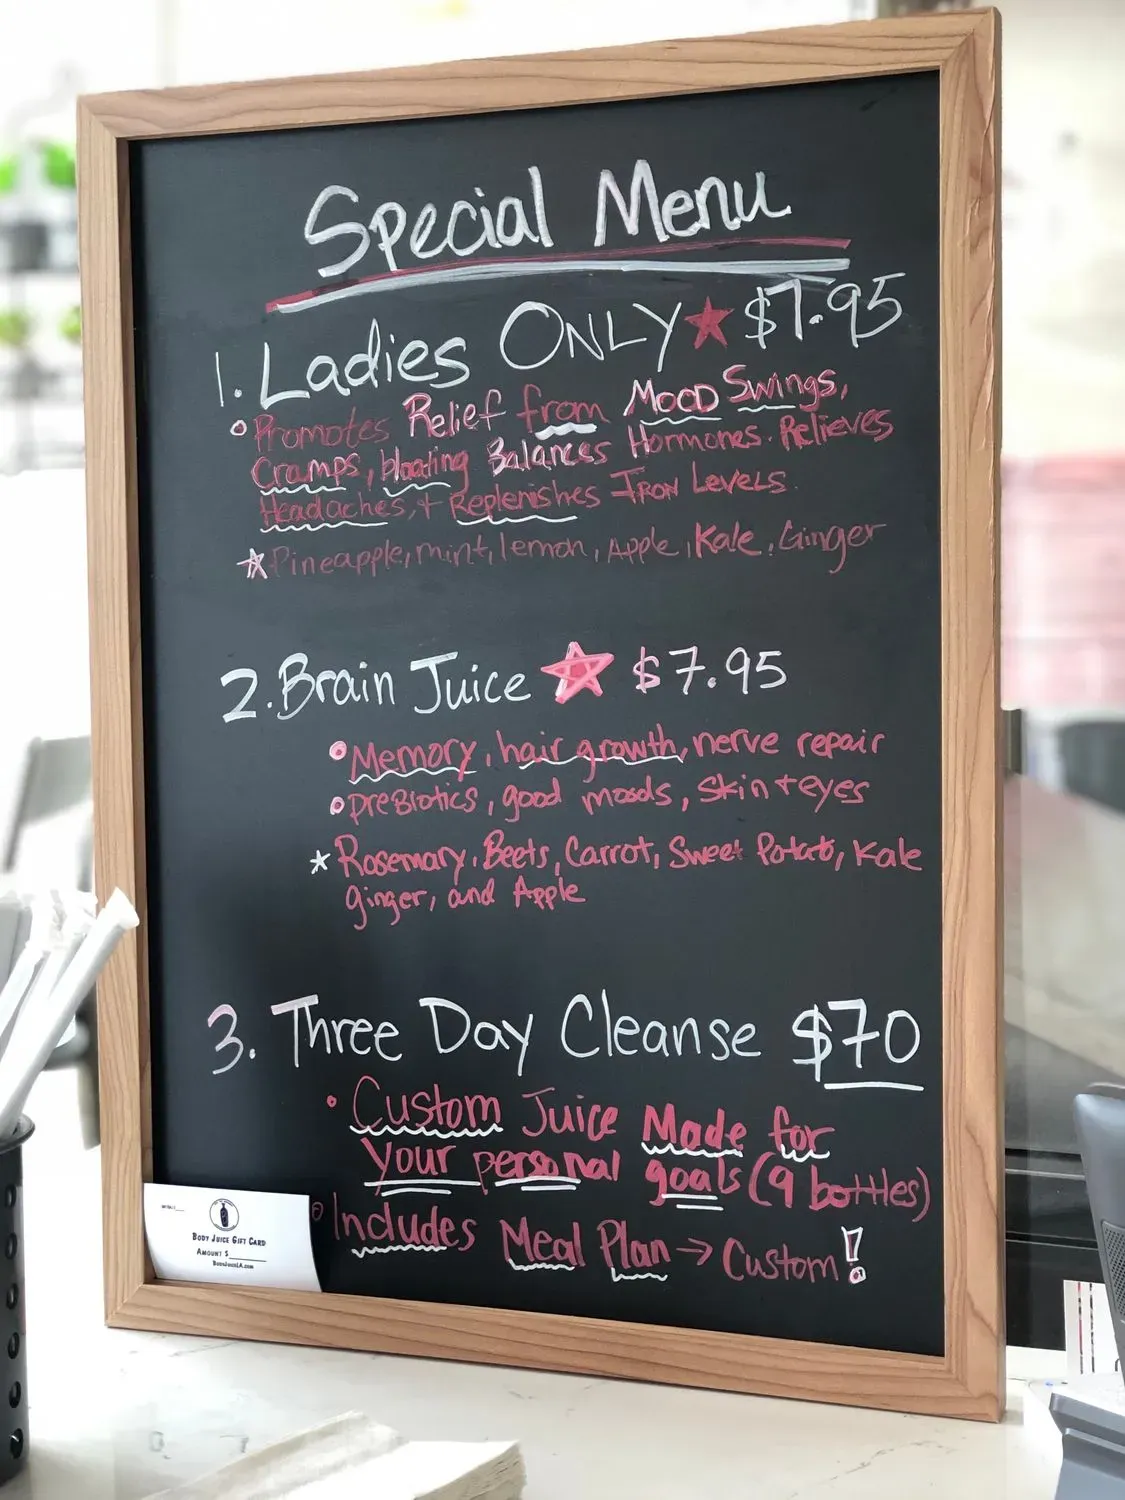 Special Menu
1. Ladies ONLY $7.95
Promotes Relief from Mood Swings,
Cramps, bloating Balances Hormones. Relieves
Headaches, + Replenishes Iron Levels.
Pineapple, mint, lemon, Apple, Kale, Ginger
2. Brain Juice $7.95
Memory, hair growth, nerve repair
PreBiotics, good moods, Skin + eyes
Rosemary, Beets, Carrot, Sweet Potato, Kale
ginger, and Apple
3. Three Day Cleanse $70
Custom Juice Made for
Your personal goals (9 bottles)
Includes Meal Plan → Custom!
Body Juice Gift Card
Amount $
BodyJuiceLA.com